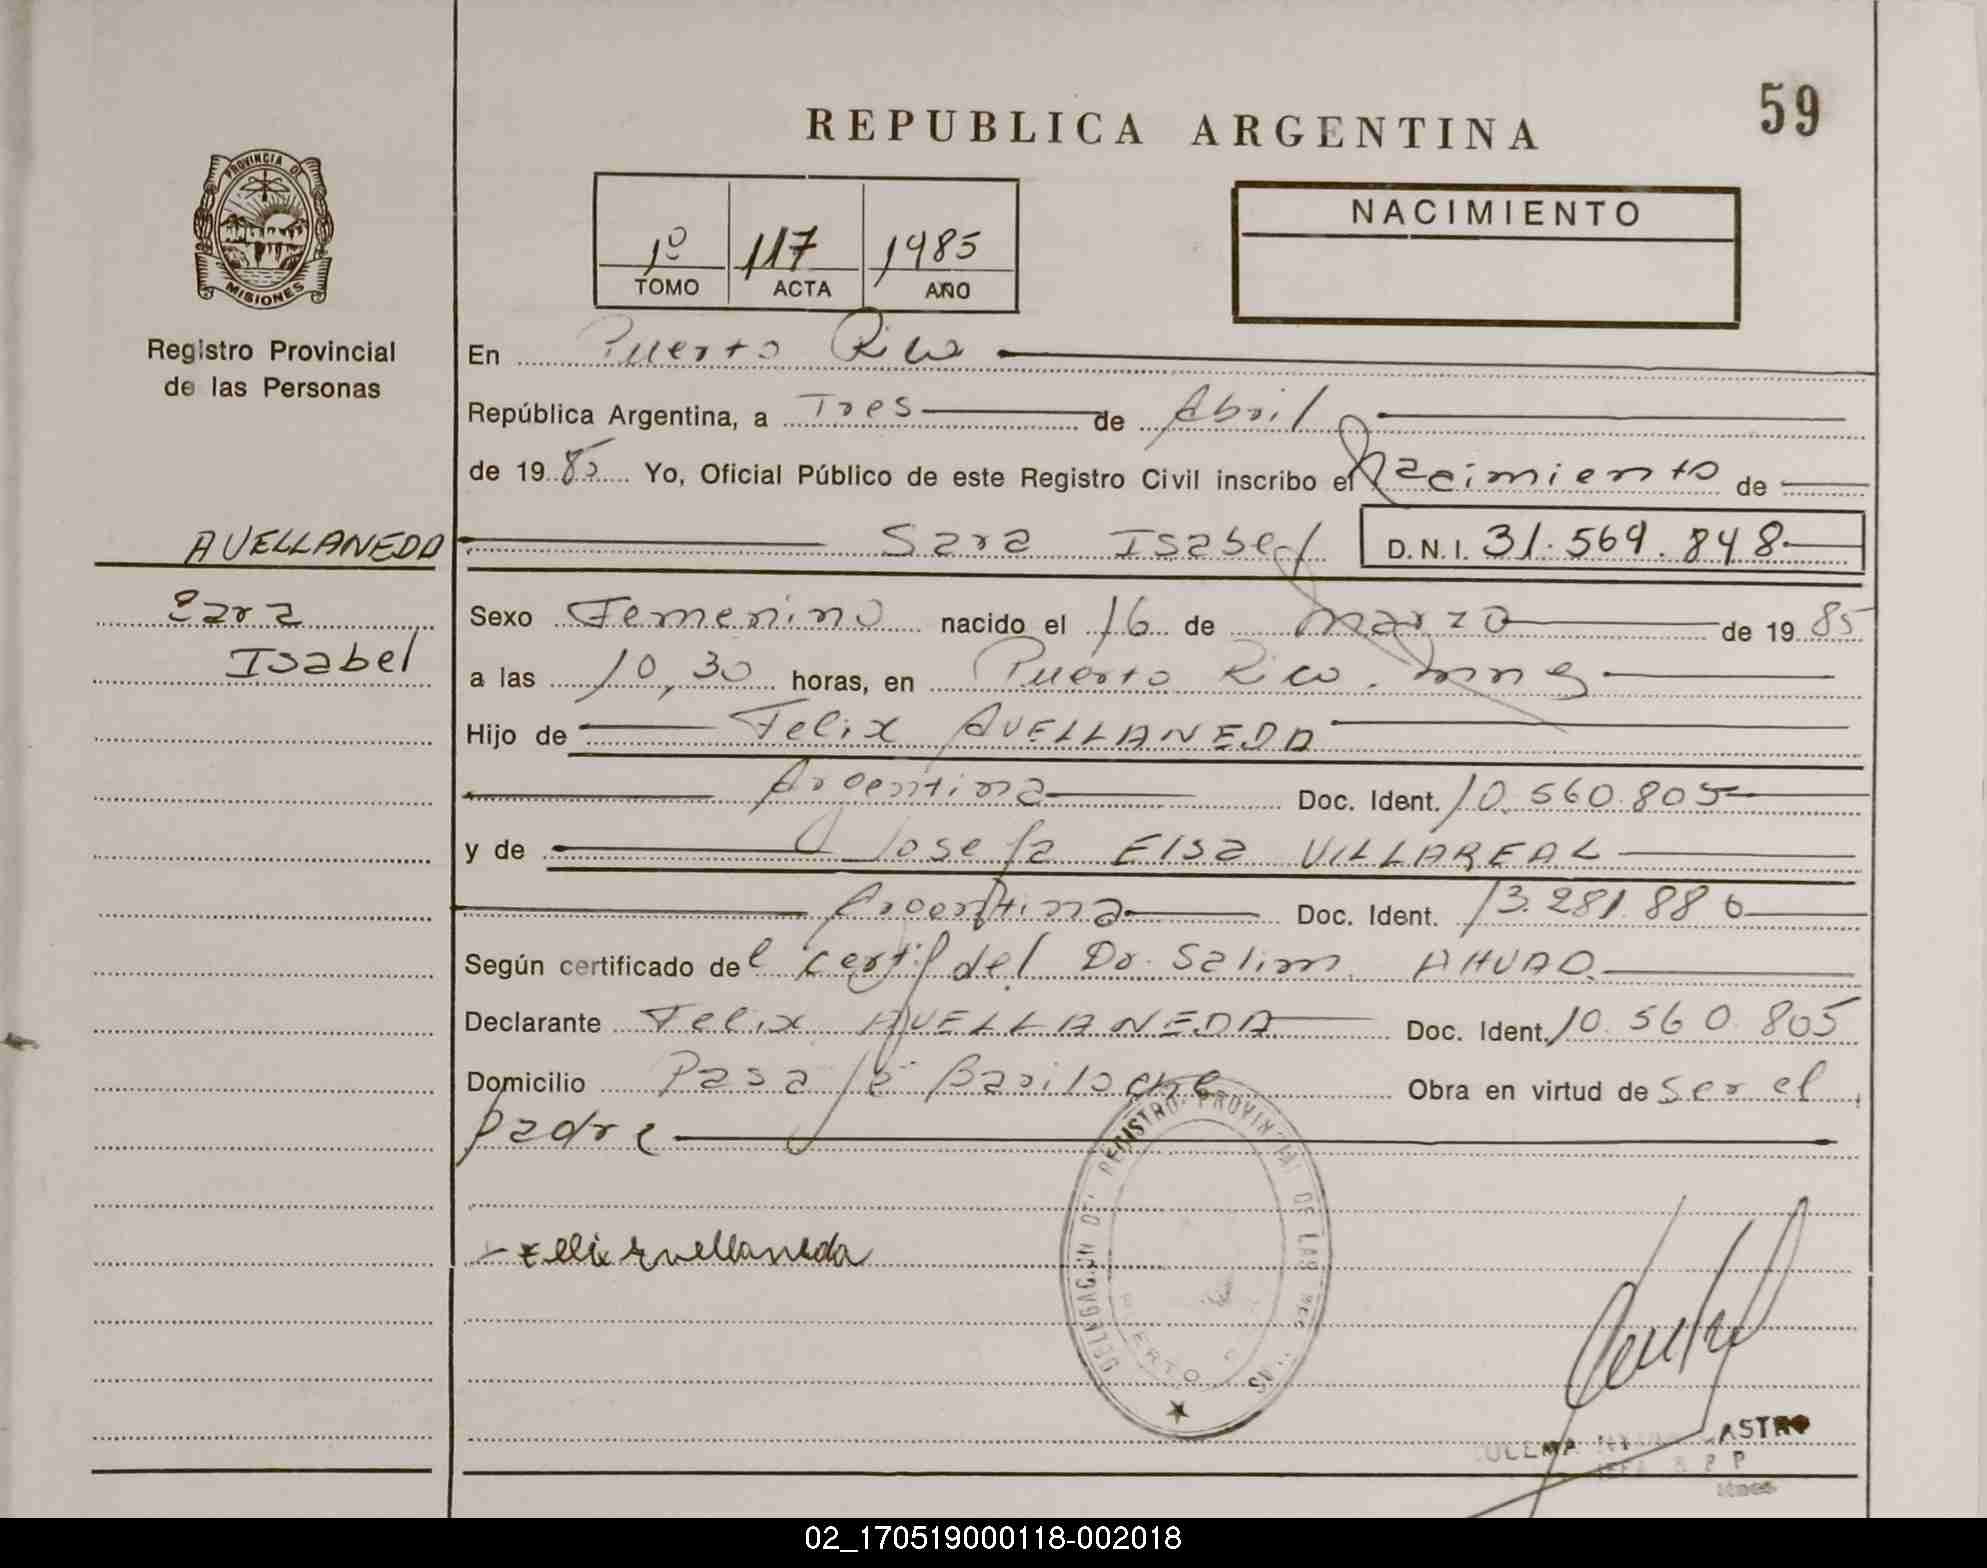 59
REPUBLICA ARGENTINA
PROVINCIA DE
MISIONES
Registro Provincial
de las Personas
1º 117 1985
TOMO ACTA AÑO
NACIMIENTO
En Puerto Rico
República Argentina, a Tres de Abril
de 1985 Yo, Oficial Público de este Registro Civil inscribo el Nacimiento de
AVELLANEDA
Sara Isabel D.N.I. 31.569.848
Sara
Isabel
Sexo Femenino nacido el 16 de Marzo de 1985
a las 10,30 horas, en Puerto Rico. Mnes
Hijo de Felix AVELLANEDA
Argentina Doc. Ident. 10.560.805
y de Josefa Elsa VILLAREAL
Argentina Doc. Ident. 13.281.886
Según certificado del certif del Dr. Salim AHUAD
Declarante Felix AVELLANEDA Doc. Ident. 10.560.805
Domicilio Pasaje Bariloche Obra en virtud de ser el
padre
DELEGACION DEL REGISTRO PROVINCIAL DE LAS
PUERTO
Felix Avellaneda
ASTRO
02_170519000118-002018